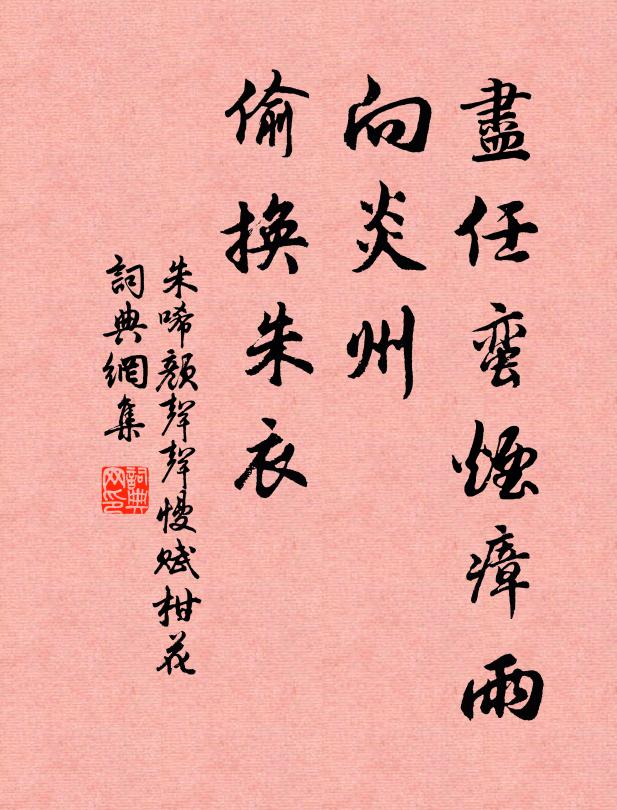 盡任蛮煙瘴雨
向炎州
偷換朱衣
朱唏顏聲聲慢賦柑花
詞典網集
詞典網印